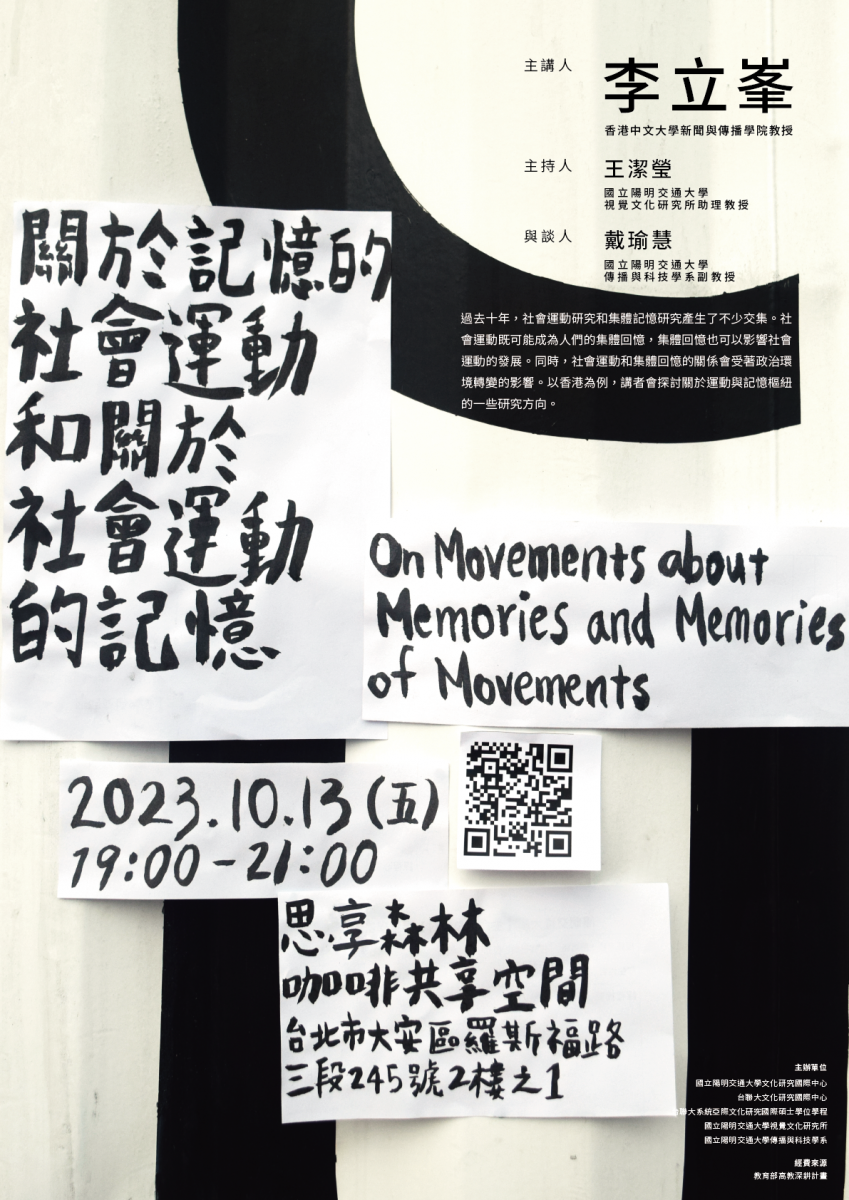 主講人
李立峯
香港中文大學新聞與傳播學院教授
主持人
王潔瑩
國立陽明交通大學
視覺文化研究所助理教授
與談人
戴瑜慧
國立陽明交通大學
傳播與科技學系副教授
過去十年，社會運動研究和集體記憶研究產生了不少交集。社
會運動既可能成為人們的集體回憶，集體回憶也可以影響社會
運動的發展。同時，社會運動和集體回憶的關係會受著政治環
境轉變的影響。以香港為例，講者會探討關於運動與記憶樞紐
的一些研究方向。
關於記憶的
社會運動
和關於
社會運動
的記憶
On Movements about
Memories and Memories
of Movements
2023.10.13(五)
19:00-21:00
思享森林
咖啡共享空間
台北市大安區羅斯福路
三段245號2樓之1
主辦單位
國立陽明交通大學文化研究國際中心
台聯大文化研究國際中心
台聯大系統亞際文化研究國際碩士學位學程
國立陽明交通大學視覺文化研究所
國立陽明交通大學傳播與科技學系
經費來源
教育部高教深耕計畫